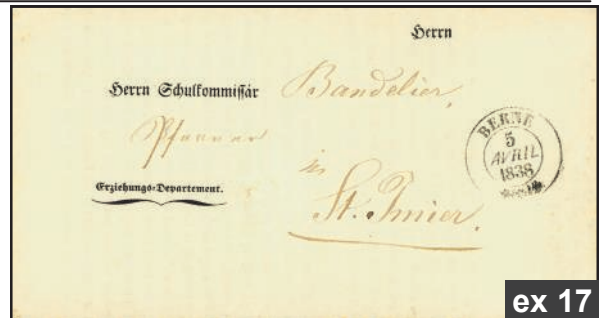 Herrn
Herrn Schulkommissär Bandelier,
Pfarrer
in
Erziehungs-Departement.
St. Imier.
BERNE
5
AVRIL
1838
ex 17